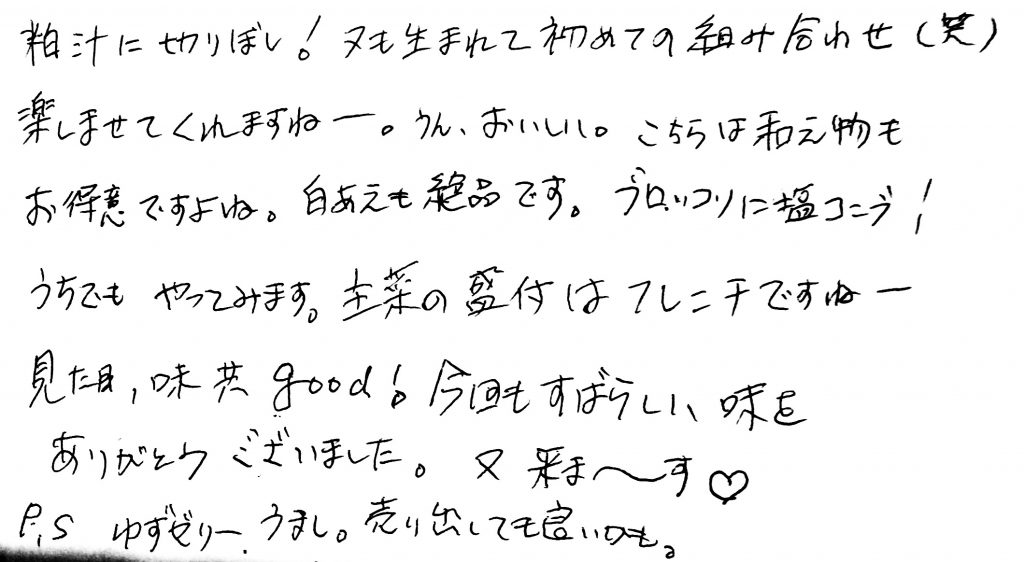 粕汁に切りぼし！又も生まれて初めての組み合わせ（笑）
楽しませてくれますねー。うん、おいしい。こちらは和え物も
お得意ですよね。白あえも絶品です。ブロッコリに塩コンブ！
うちでもやってみます。主菜の盛付はフレンチですねー
見た目，味共good！今回もすばらしい、味を
ありがとうございました。又来ま〜す♡
P.S ゆずゼリー、うまし。売り出しても良いのも。